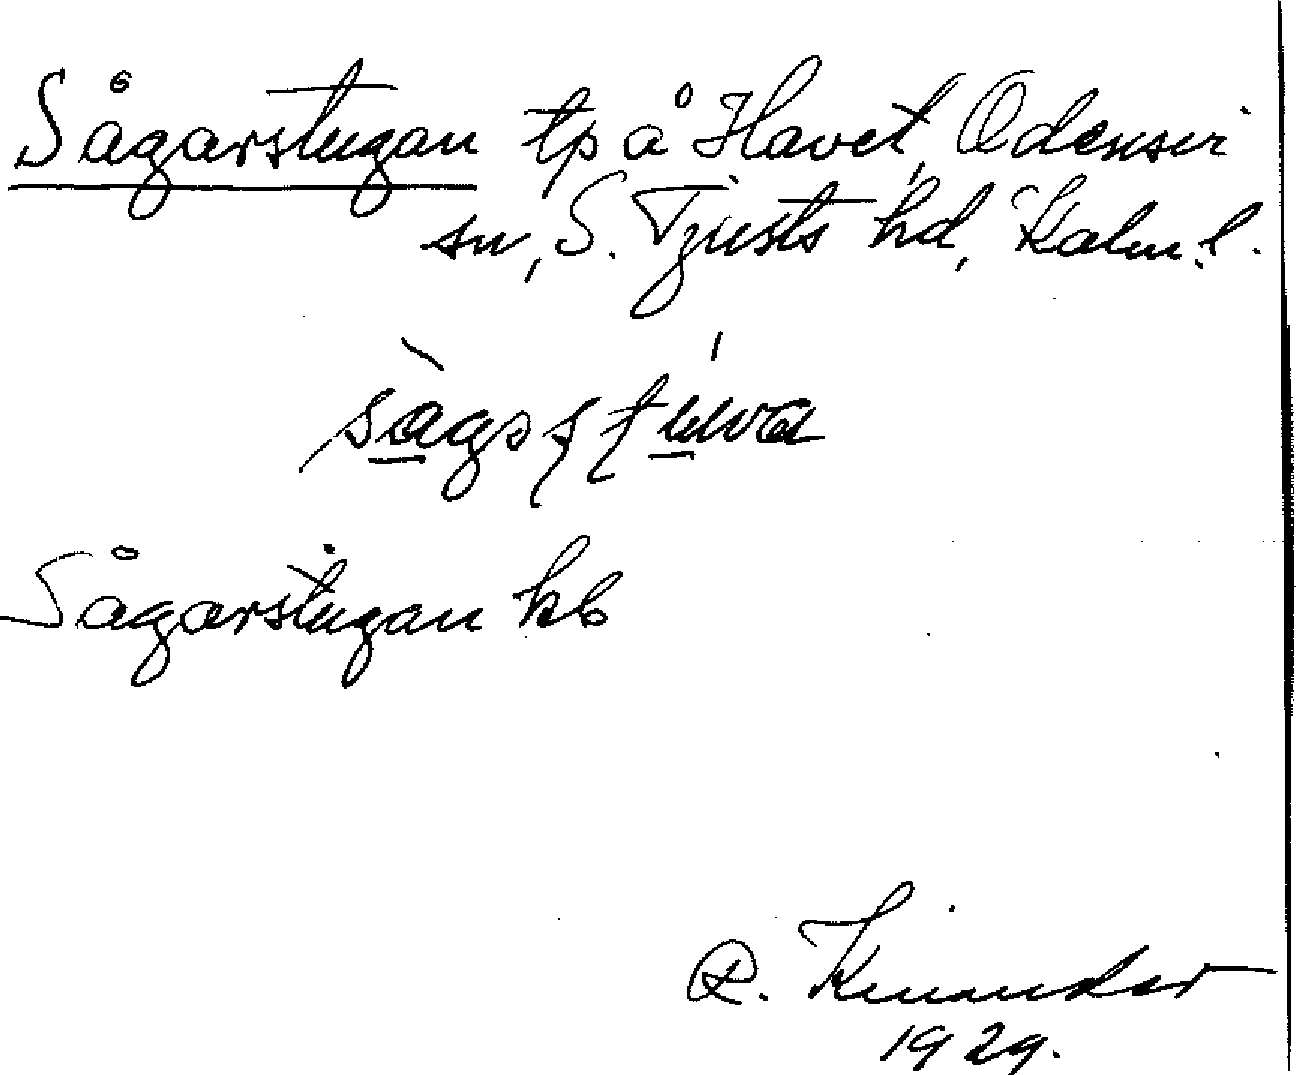 Sågarstugan tp å Havet, Odensvi
sn, S. Tjusts hd, Kalm. l.
Sågarstugan kb
R. Kinander
1929.